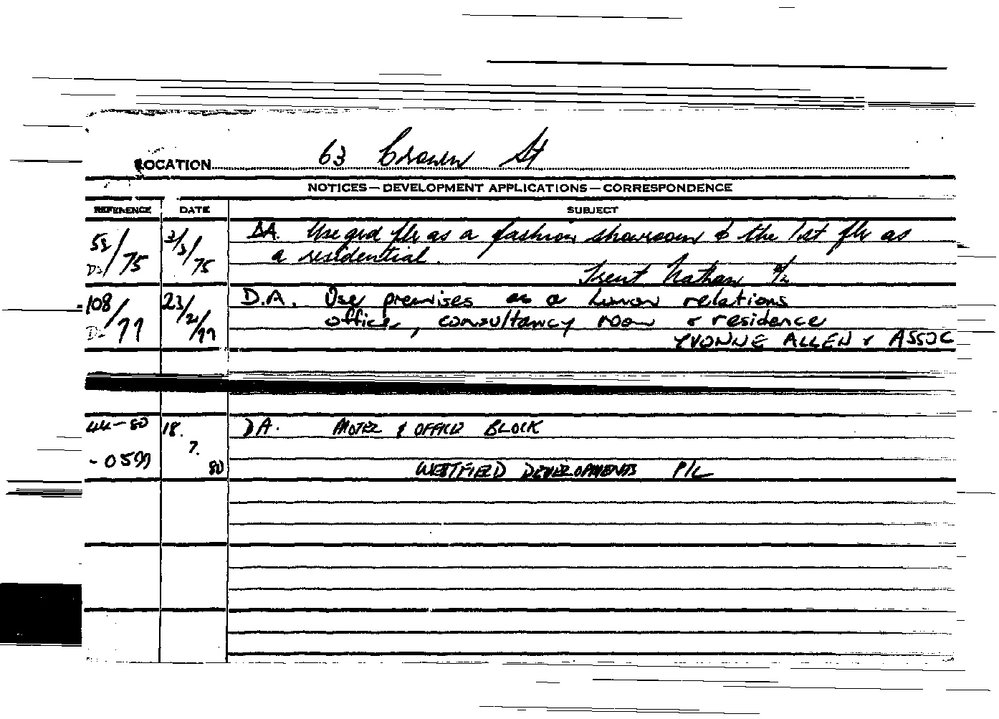 LOCATION 63 Crown St
NOTICES — DEVELOPMENT APPLICATIONS — CORRESPONDENCE
REFERENCE DATE SUBJECT
58/75 3/3/75 DA. Use grd flr as a fashion showroom & the 1st flr as
a residential.
Trent Nathan P/L
108/77 23/2/77 D.A. Use premises as a human relations
office, consultancy room & residence
YVONNE ALLEN & ASSOC
44-80 18. DA. MOTEL & OFFICE BLOCK
-0599 7.
80 WESTFIELD DEVELOPMENTS P/L